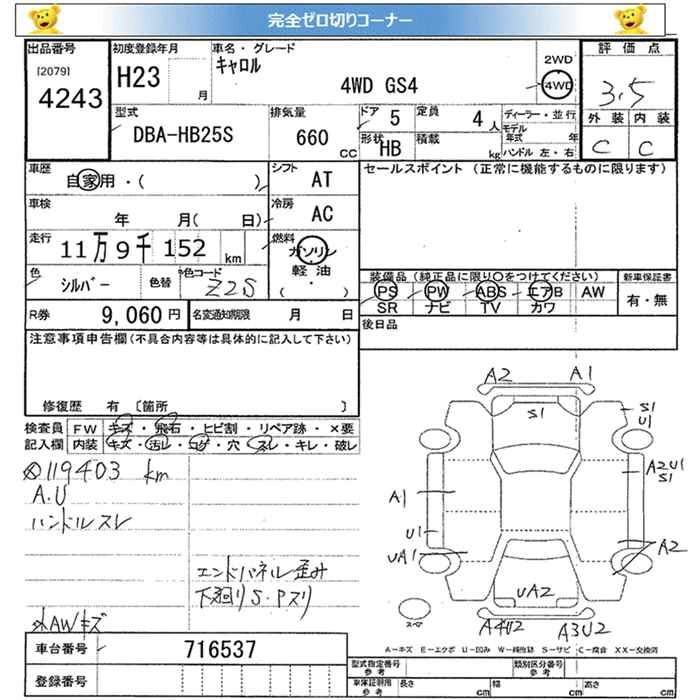 完全ゼロ切りコーナー
出品番号 初度登録年月 車名・グレード 評価点
[2079] キャロル 2WD
4243 H23 月 4WD GS4 4WD 3.5
型式 排気量 ドア 5 定員 4 人 ディーラー・並行 外装 内装
DBA-HB25S 660 CC 形状 HB 積載 kg モデル年式 年 ハンドル 左・右 C C
車歴 自家用・( ) シフト AT セールスポイント (正常に機能するものに限ります)
車検 年 月( 日) 冷房 AC
走行 11万9千152 km 燃料 ガソリン 軽油 ( ・ )
色 シルバー 色替 色コード Z2S
装備品 (純正品に限り○をつけてください) 新車保証書
PS PW ABS エアB AW 有・無
SR ナビ TV カワ
R券 9,060円 名変通知期限 月 日 後日品
注意事項申告欄(不具合内容等は具体的に記入して下さい)
修復歴 有 〔箇所 〕
検査員 FW キズ・飛石・ヒビ割・リペア跡・×要
記入欄 内装 キズ・汚レ・コゲ・穴・スレ・キレ・破レ
119403 km
A.U
ハンドルスレ
エンドパネル歪み
下廻りS.Pスリ
AWキズ
A2 A1
S1 S1
U1
A2U1
S1
A1
U1
UA1 A2
UA2
スペア A4U2 A3U2
A-キズ E-エクボ U-凹み W-補修跡 S-サビ C-腐食 XX-交換済
車台番号 716537
登録番号
型式指定番号 参考 類別区分番号 参考
車庫証明用 参考 長さ cm 幅 cm 高さ cm